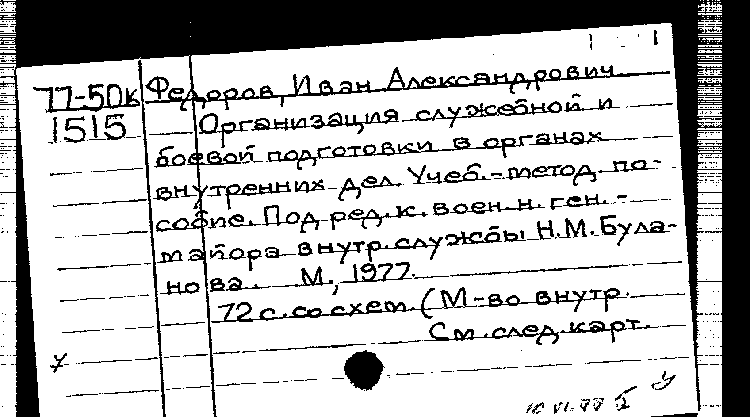 77-50к Федоров, Иван Александрович
1515 Организация служебной и
боевой подготовки в органах
внутренних дел. Учеб.-метод. по-
собие. Под ред. к. воен. н. ген.-
майора внутр. службы Н.М. Була-
нова. М., 1977.
72 с. со схем. (М-во внутр.
См. след. карт.